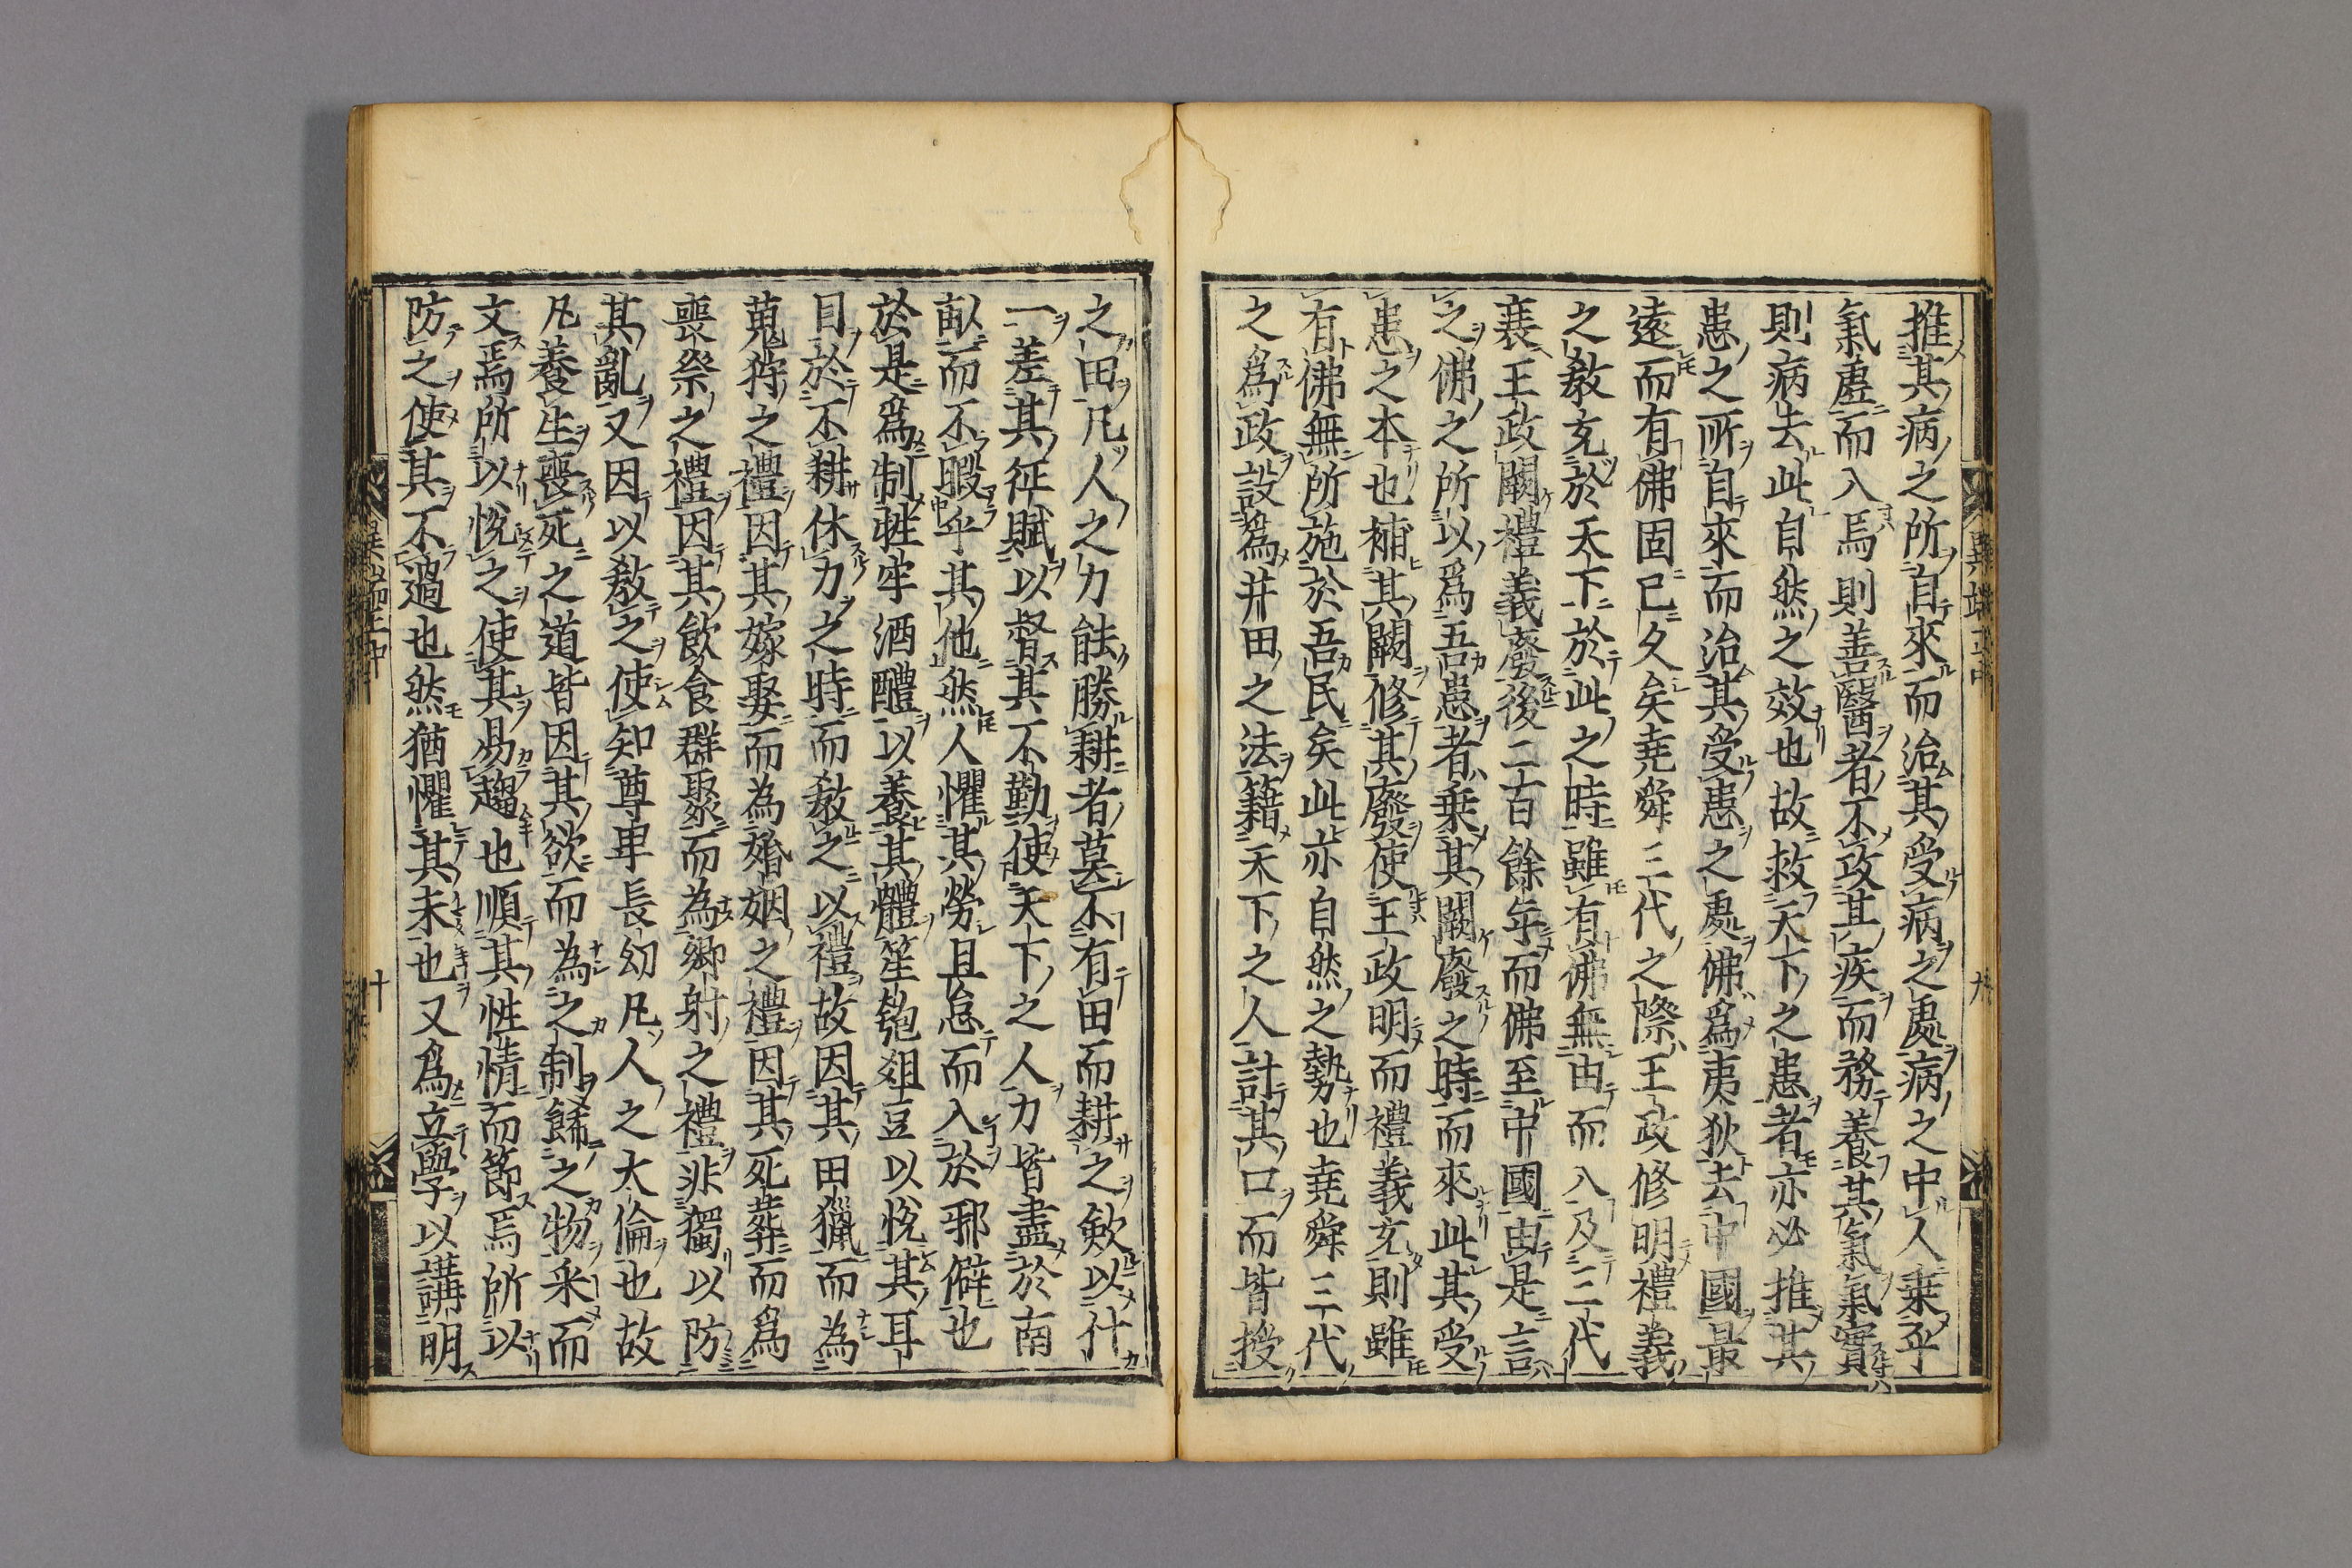 推其病之所自來而治其受病之處病之中人乗乎
氣虛而入焉則善醫者不攻其疾而務養其氣氣實
則病去此自然之效也故救天下之患者亦必推其
患之所自來而治其受患之處佛爲夷狄去中國最
遠而有佛固已久矣堯舜三代之際王政修明禮義
之教充於天下於此之時雖有佛無由而入及三代
衰王政闕禮義廢後二百餘年而佛至中國由是言
之佛之所以爲吾患者乗其闕廢之時而來此其受
患之本也補其闕修其廢使王政明而禮義充則雖
有佛無所施於吾民矣此亦自然之勢也堯舜三代
之爲政設爲井田之法籍天下之人計其口而皆授
之田凡人之力能勝耕者莫不有田而耕之斂以什
一差其征賦以督其不勤使天下之人力皆盡於南
畝而不暇乎其他然人懼其勞且怠而入於邪僻也
於是爲制牲牢酒醴以養其體笙匏俎豆以悅其耳
目於不耕休力之時而教之以禮故因其田獵而為
蒐狩之禮因其嫁娶而為婚姻之禮因其死葬而爲
喪祭之禮因其飲食群聚而為鄉射之禮非獨以防
其亂又因以教之使知尊卑長幼凡人之大倫也故
凡養生喪死之道皆因其欲而為之制餙之物采而
文焉所以悅之使其易趨也順其性情而節焉所以
防之使其不過也然猶懼其未也又爲立學以講明
異端正中
九
十